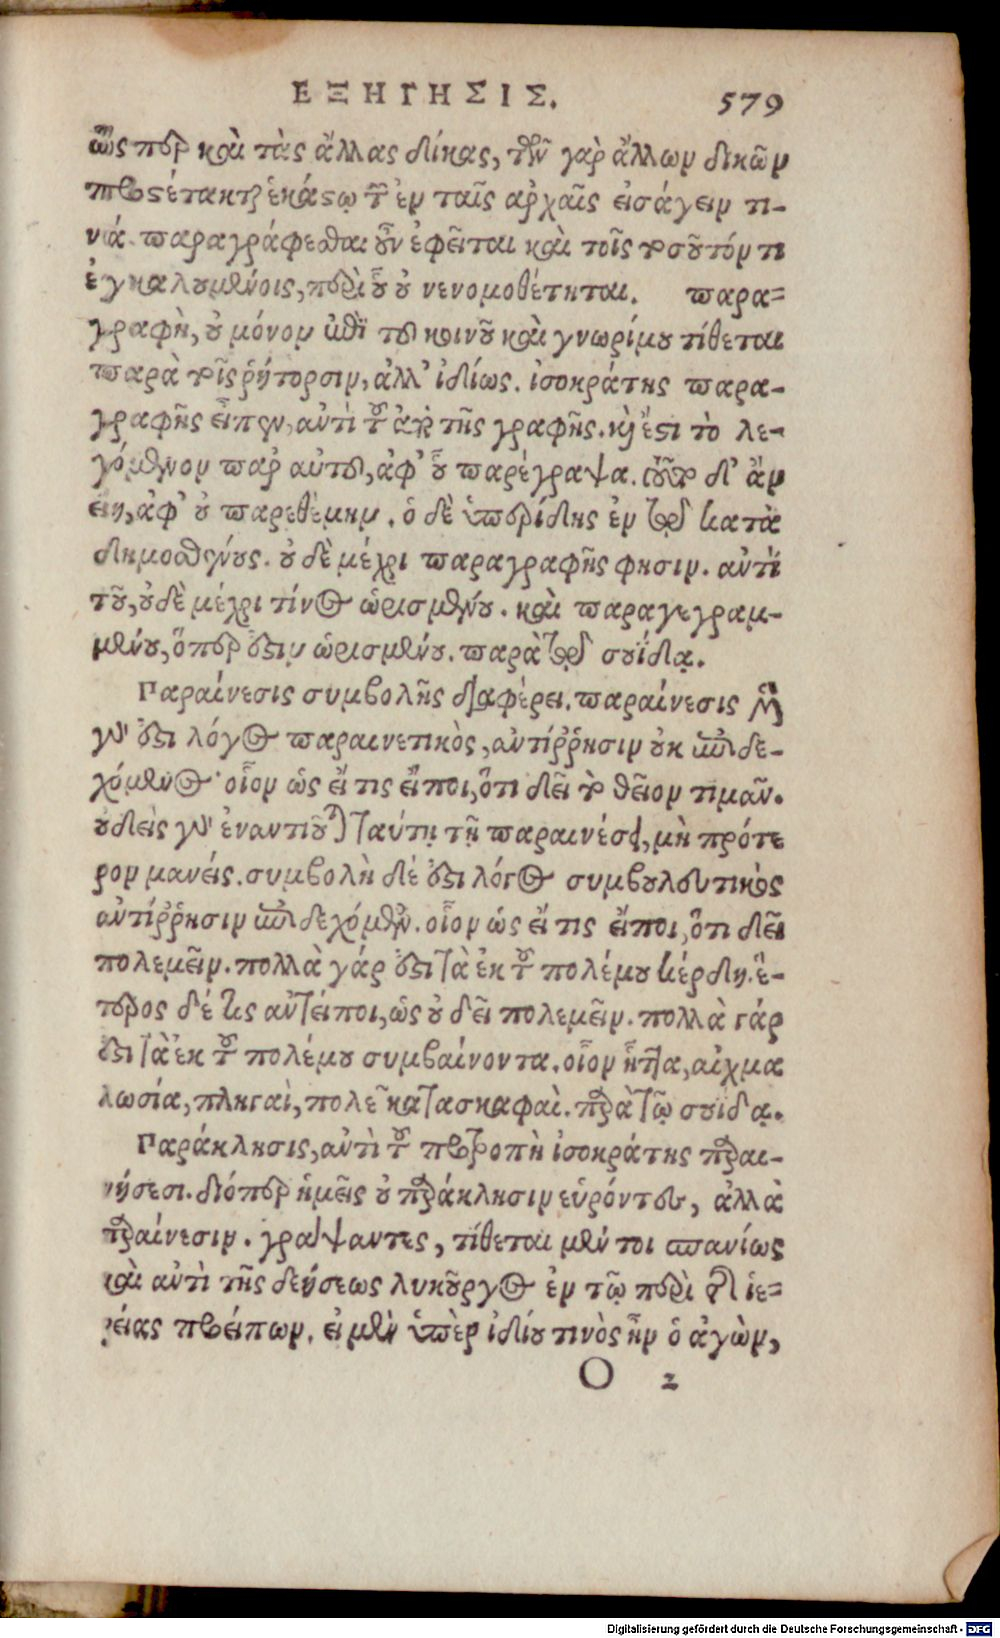 ΕΞΗΓΗΣΙΣ. 579
ὥς περ καὶ τὰς ἄλλας δίκας, τῶν γὰρ ἄλλων δικῶν
προςέτακται ἑκάστῳ τῶν ἐν ταῖς ἀρχαῖς εἰσάγειν τι-
νά. παραγράφεσθαι οὖν ἐφεῖται καὶ τοῖς τοιοῦτόν τι
ἐγκαλουμένοις, περὶ οὗ οὐ νενομοθέτηται. παρα=
γραφὴ, οὐ μόνον ἐπὶ τοῦ κοινοῦ καὶ γνωρίμου τίθεται
παρὰ τοῖς ῥήτορσιν, ἀλλ' ἰδίως. ἰσοκράτης παρα-
γραφῆς εἶπεν, αὐτὶ τοῦ ἀπὸ τῆς γραφῆς. καὶ ἔστι τὸ λε-
γόμενον παρ αὐτοῦ, ἀφ' οὗ παρέγραψα. τοῦτο δ' ἂν
εἴη, ἀφ' οὗ παρεθέμην. ὁ δὲ ὑπερίδης ἐν τῷ κατὰ
δημοσθένους. οὐδὲ μέχρι παραγραφῆς φησιν. αὐτὶ
τοῦ, οὐδὲ μέχρι τίνος ὡρισμένου. καὶ παραγεγραμ-
μένου, ὅπερ ἐστὶν ὡρισμένου. παρὰ τῷ σουΐδᾳ.
Παραίνεσις συμβολῆς διαφέρει. παραίνεσις μὲν
γάρ ἐστι λόγος παραινετικὸς, αὐτίῤῥησιν οὐκ ἐπιδε-
χόμενος· οἷον ὡς εἴ τις εἴποι, ὅτι δεῖ τὸ θεῖον τιμᾶν.
οὐδεὶς γὰρ ἐναντιοῦται ταύτῃ τῇ παραινέσει, μὴ πρότε
ρον μανείς. συμβολὴ δέ ἐστι λόγος συμβουλευτικὸς
αὐτίῤῥησιν ἐπιδεχόμενος. οἷον ὡς εἴ τις εἴποι, ὅτι δεῖ
πολεμεῖν. πολλὰ γάρ ἐστι τὰ ἐκ τοῦ πολέμου κέρδη. ἕ-
τερος δέ τις αὐτείποι, ὡς οὐ δεῖ πολεμεῖν. πολλὰ γάρ
ἐστι τὰ ἐκ τοῦ πολέμου συμβαίνοντα. οἷον ἧττα, αἰχμα
λωσία, πληγαὶ, πόλεων κατασκαφαί. παρὰ τῷ σουίδᾳ.
Παράκλησις, αὐτὶ τοῦ προτροπὴ ἰσοκράτης παραι-
νέσεσι. διόπερ ἡμεῖς οὐ παράκλησιν εὑρόντες, ἀλλὰ
παραίνεσιν. γράψαντες, τίθεται μέν τοι σπανίως
καὶ αὐτὶ τῆς δεήσεως λυκοῦργος ἐν τῷ περὶ τῆς ἱε=
ρείας προείπων. εἰ μὲν ὑπὲρ ἰδίου τινὸς ἦν ὁ ἀγὼν,
O 2
Digitalisierung gefördert durch die Deutsche Forschungsgemeinschaft - DFG